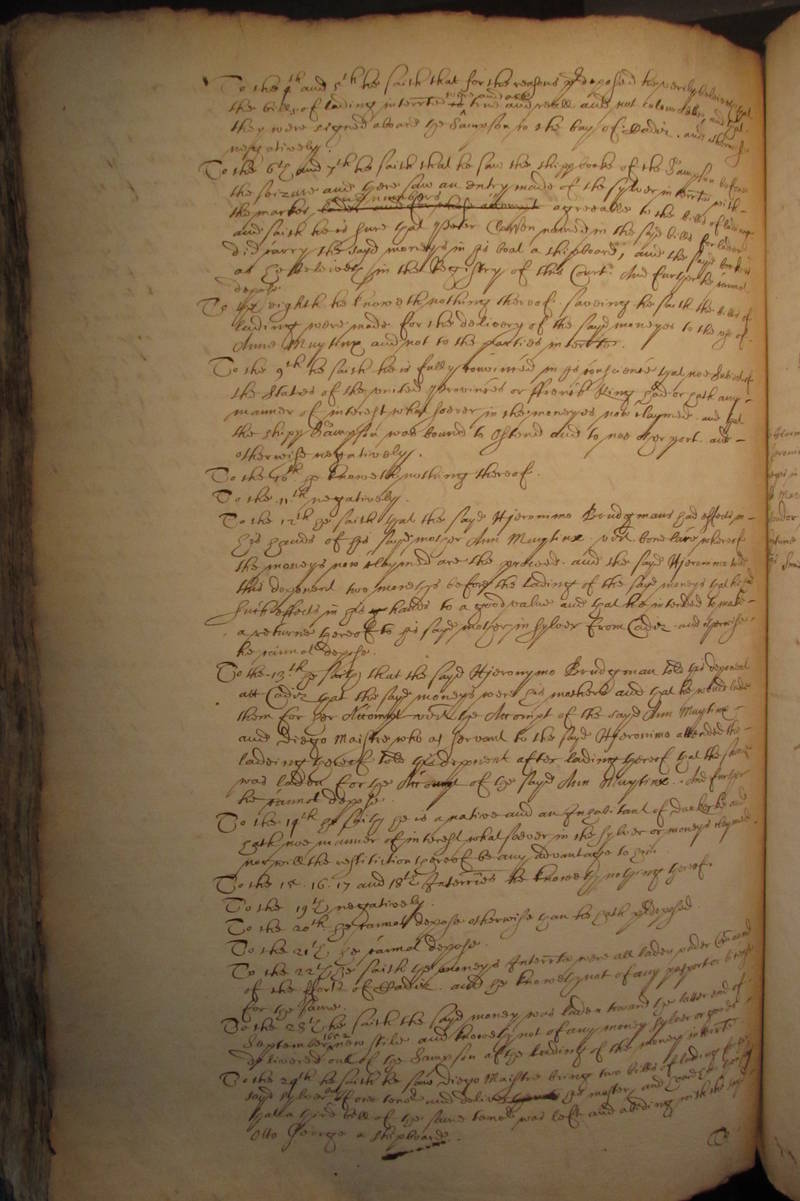 To the 4th and 5th he saith that for the reasons predeposed hee verily beleeveth that
the bills of lading interrate were and are true and reall and not colourable, and that
they were signed aboard the Sampson in the bay of Cadiz. and otherwise
negatively.
To the 6th and 7th he saith that he saw the shipps booke of the Sampson before
the seizure and there saw an entry made of the sylver interrate with
the markes and numbers agreeable to the bills of lading
and saith he is sure that Peter Clawson named in the sayd bills for
did carry the sayd moneys in his boat a shipboard, and the sayd booke is
as he beleeveth in the Registry of this Court. And further he cannot
depose.
To the eighth he knoweth nothing thereof. saveing he saith the bills of
lading were made for the delivery of the sayd moneyes to the use of
Anna Muytinx and not to the parties interrate.
To the 9th he saith he is fully convinced in his conscience that noe subiects of
the States of the united Provinces or ffrench King had or hath any
manner of interest what soever in the moneyes now claymed. and that
the shipp Sampson was bound to Ostend and to noe other port. and
otherwise negatively.
To the 10th he knoweth nothing thereof.
To the 11th negatively.
To the 12th he saith that the sayd Hieronimo Brudgmans had effects in
his hands of his sayd mother Ann Muytinx vizt. bone lace whereof
the moneys now claymed are the proceeds. and the sayd Hieronimo told
this deponent two moneths before the lading of the sayd moneys that he had
such effects in his hands to a good value and that he intended to make
a returne thereof to his sayd mother in sylver from Cadiz. and otherwise
he cannot depose.
To the 13th he saith that the sayd Hieronymo Brudgman told this deponent
att Cadiz that the sayd moneys were his mothers and that he would lade
them for her Accompt vizt. the Accompt of the sayd Ann Muytinx
and Diego Maistre who as servant to the sayd Hieronimo attended the
ladeing thereof told this deponent after lading thereof that the same
was laden for the Accompt of the sayd Ann Muytinx. And further
he cannot depose.
To the 14th he saith he is a native and an Inhabitant of dunkerke and
hath noe manner of interest what soever in the sylver or moneys claymed.
nor will the restitution thereof be any advantage to him.
To the 15. 16. 17 and 18th Interries he knoweth nothing thereof.
To the 19th negatively.
To the 20th he cannot depose otherwise than he hath predeposed
To the 21th he cannot depose.
To the 22th he saith the moneys Interrate were all laden under
of the fforts of Cadiz. and he knoweth not of any pasport or
for the same.
To the 23th he saith the sayd money was laden toward the latter end of
September 1652 new stile and knoweth not of any money sylver or goods
delivered out of the Sampson after the lading of the money interrate
To the 24th he saith he saw Diego Maistre bring two bills of lading
sayd sylver of one tenor and deliver his master, and
that a third bill of the same tenor was left and abiding with the sayd
Otto George a shipboard.
To